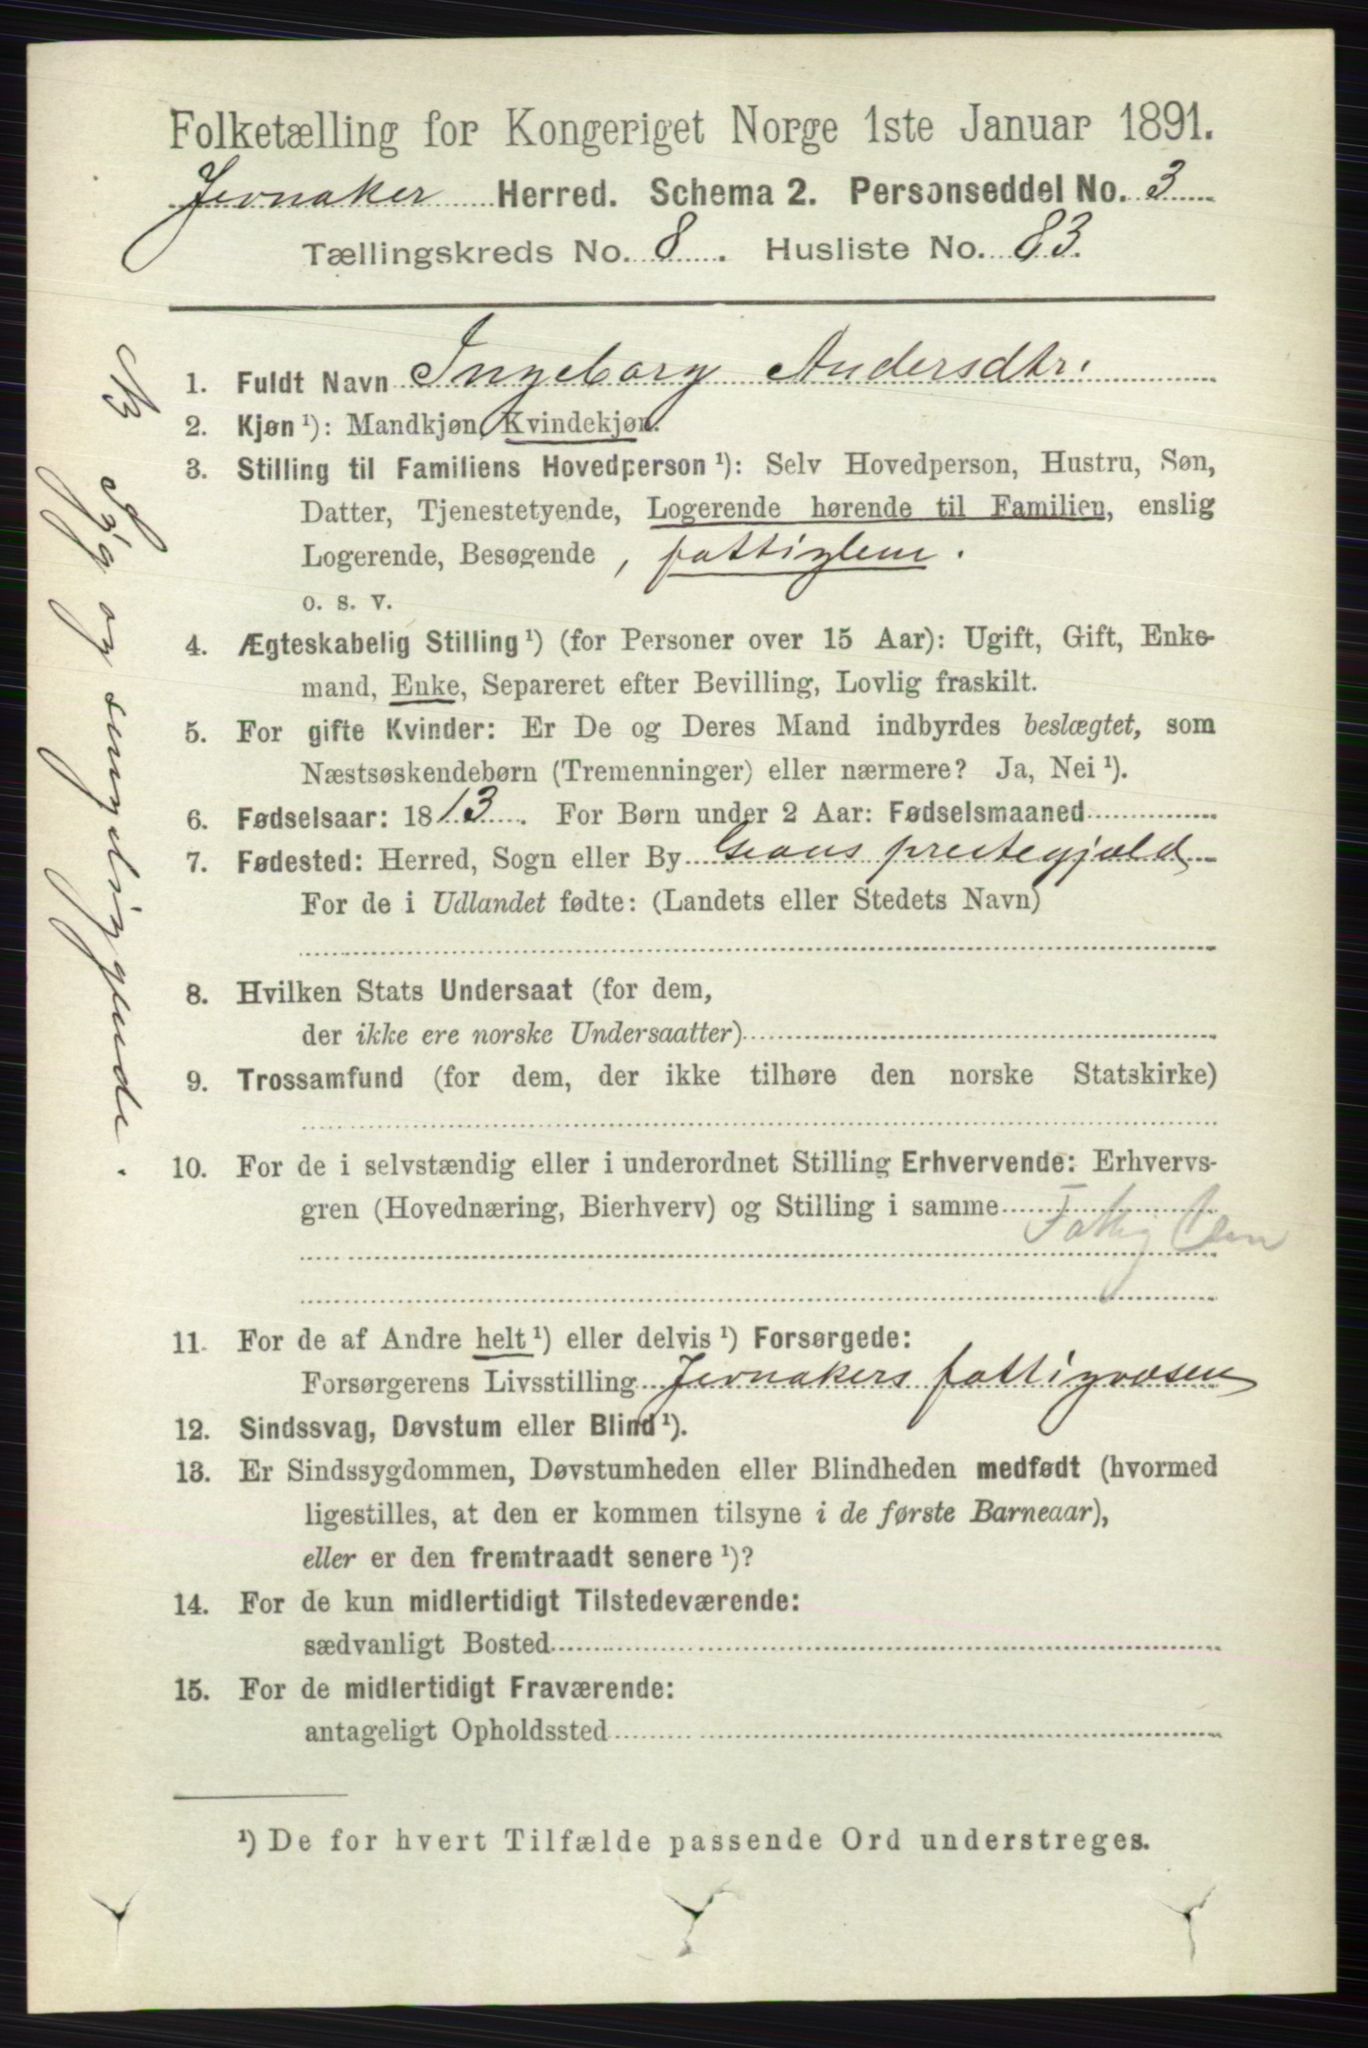 Folketælling for Kongeriget Norge 1ste Januar 1891.
Jevnaker Herred. Schema 2. Personseddel No. 3
Tællingskreds No. 8. Husliste No. 83.
1. Fuldt Navn Ingeborg Andersdtr.
2. Kjøn ¹): Mandkjøn, Kvindekjøn.
3. Stilling til Familiens Hovedperson ¹): Selv Hovedperson, Hustru, Søn,
Datter, Tjenestetyende, Logerende hørende til Familien, enslig
Logerende, Besøgende , fattiglem.
o. s. v.
4. Ægteskabelig Stilling ¹) (for Personer over 15 Aar): Ugift, Gift, Enke-
mand, Enke, Separeret efter Bevilling, Lovlig fraskilt.
5. For gifte Kvinder: Er De og Deres Mand indbyrdes beslægtet, som
Næstsøskendebørn (Tremenninger) eller nærmere? Ja, Nei ¹).
6. Fødselsaar: 1813. For Børn under 2 Aar: Fødselsmaaned
7. Fødested: Herred, Sogn eller By Grans prestegjæld
For de i Udlandet fødte: (Landets eller Stedets Navn)
8. Hvilken Stats Undersaat (for dem,
der ikke ere norske Undersaatter)
9. Trossamfund (for dem, der ikke tilhøre den norske Statskirke)
10. For de i selvstændig eller i underordnet Stilling Erhvervende: Erhvervs-
gren (Hovednæring, Bierhverv) og Stilling i samme
Fattig Lem
11. For de af Andre helt ¹) eller delvis ¹) Forsørgede:
Forsørgerens Livsstilling Jevnakers fattigvæsen
12. Sindssvag, Døvstum eller Blind ¹).
13. Er Sindssygdommen, Døvstumheden eller Blindheden medfødt (hvormed
ligestilles, at den er kommen tilsyne i de første Barneaar),
eller er den fremtraadt senere ¹)?
14. For de kun midlertidigt Tilstedeværende:
sædvanligt Bosted
15. For de midlertidigt Fraværende:
antageligt Opholdssted
¹) De for hvert Tilfælde passende Ord understreges.
NB
Syg og sengeliggende.